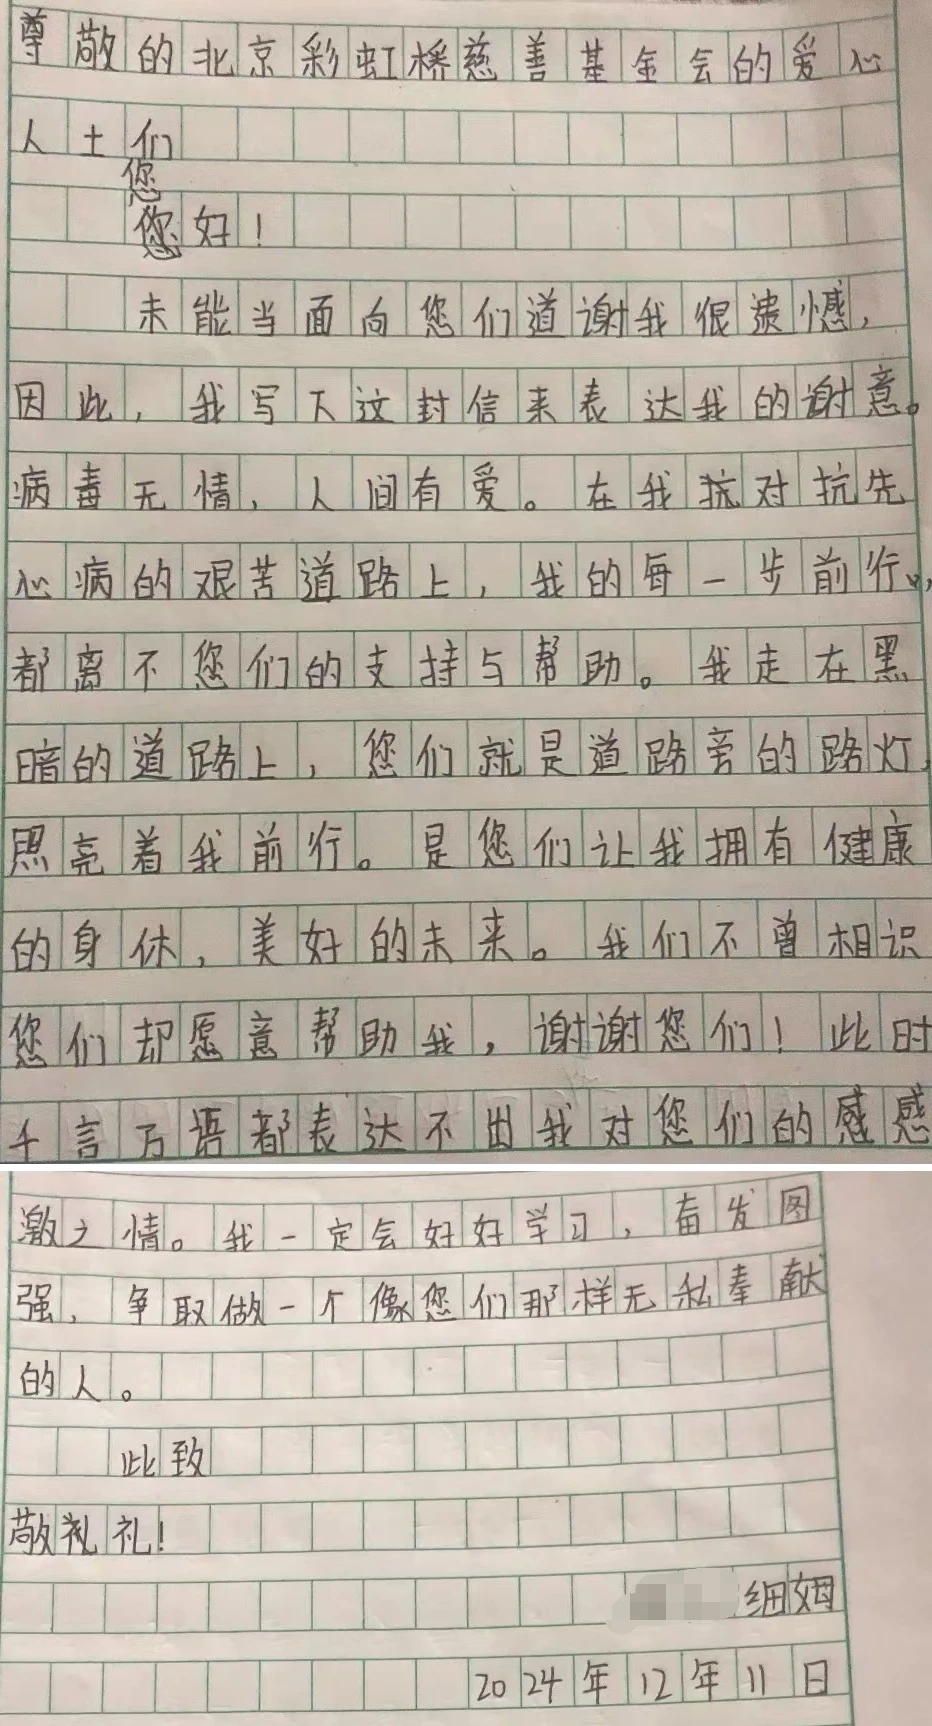 尊敬的北京彩虹桥慈善基金会的爱心
人士们
您
您好！
未能当面向您们道谢我很遗憾，
因此，我写下这封信来表达我的谢意。
病毒无情，人间有爱。在我抗对抗先
心病的艰苦道路上，我的每一步前行，
都离不您们的支持与帮助。我走在黑
暗的道路上，您们就是道路旁的路灯，
照亮着我前行。是您们让我拥有健康
的身体，美好的未来。我们不曾相识
您们却愿意帮助我，谢谢您们！此时
千言万语都表达不出我对您们的感感
激之情。我一定会好好学习，奋发图
强，争取做一个像您们那样无私奉献
的人。
此致
敬礼礼！
细姆
2024年12年11日